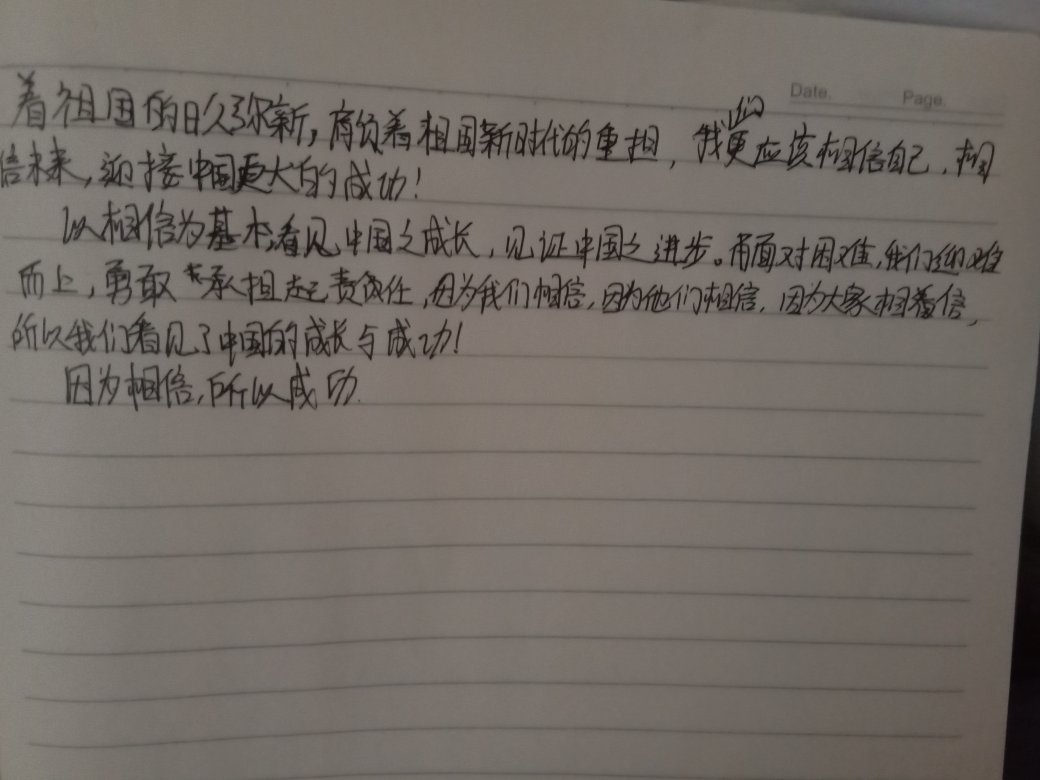 Date. Page.
着祖国的日久弥新，肩负着祖国新时代的重担，我们更应该相信自己，相
信未来，迎接中国更大的成功！
以相信为基本，看见中国之成长，见证中国之进步。而面对困难，我们迎难
而上，勇敢承担起责任，因为我们相信，因为他们相信，因为大家相信，
所以我们看见了中国的成长与成功！
因为相信，所以成功.